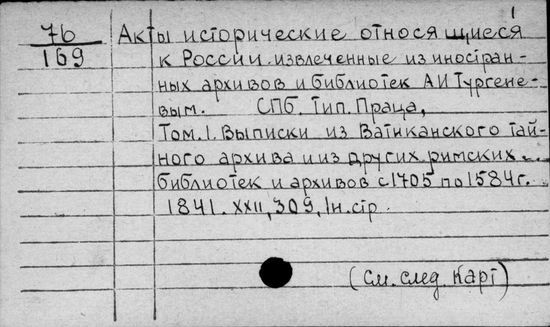 1
76 Акты исторические относящиеся
169 к России, извлеченные из иностран-
ных архивов и библиотек А И Тургене-
вым. СПб. Тип. Праца,
Том. 1. Выписки из Ватиканского тай-
ного архива и из других римских
библиотек и архивов с 1705 по 1584г.
1841. XXII, 309, 1н. стр.
(См. след. карт)